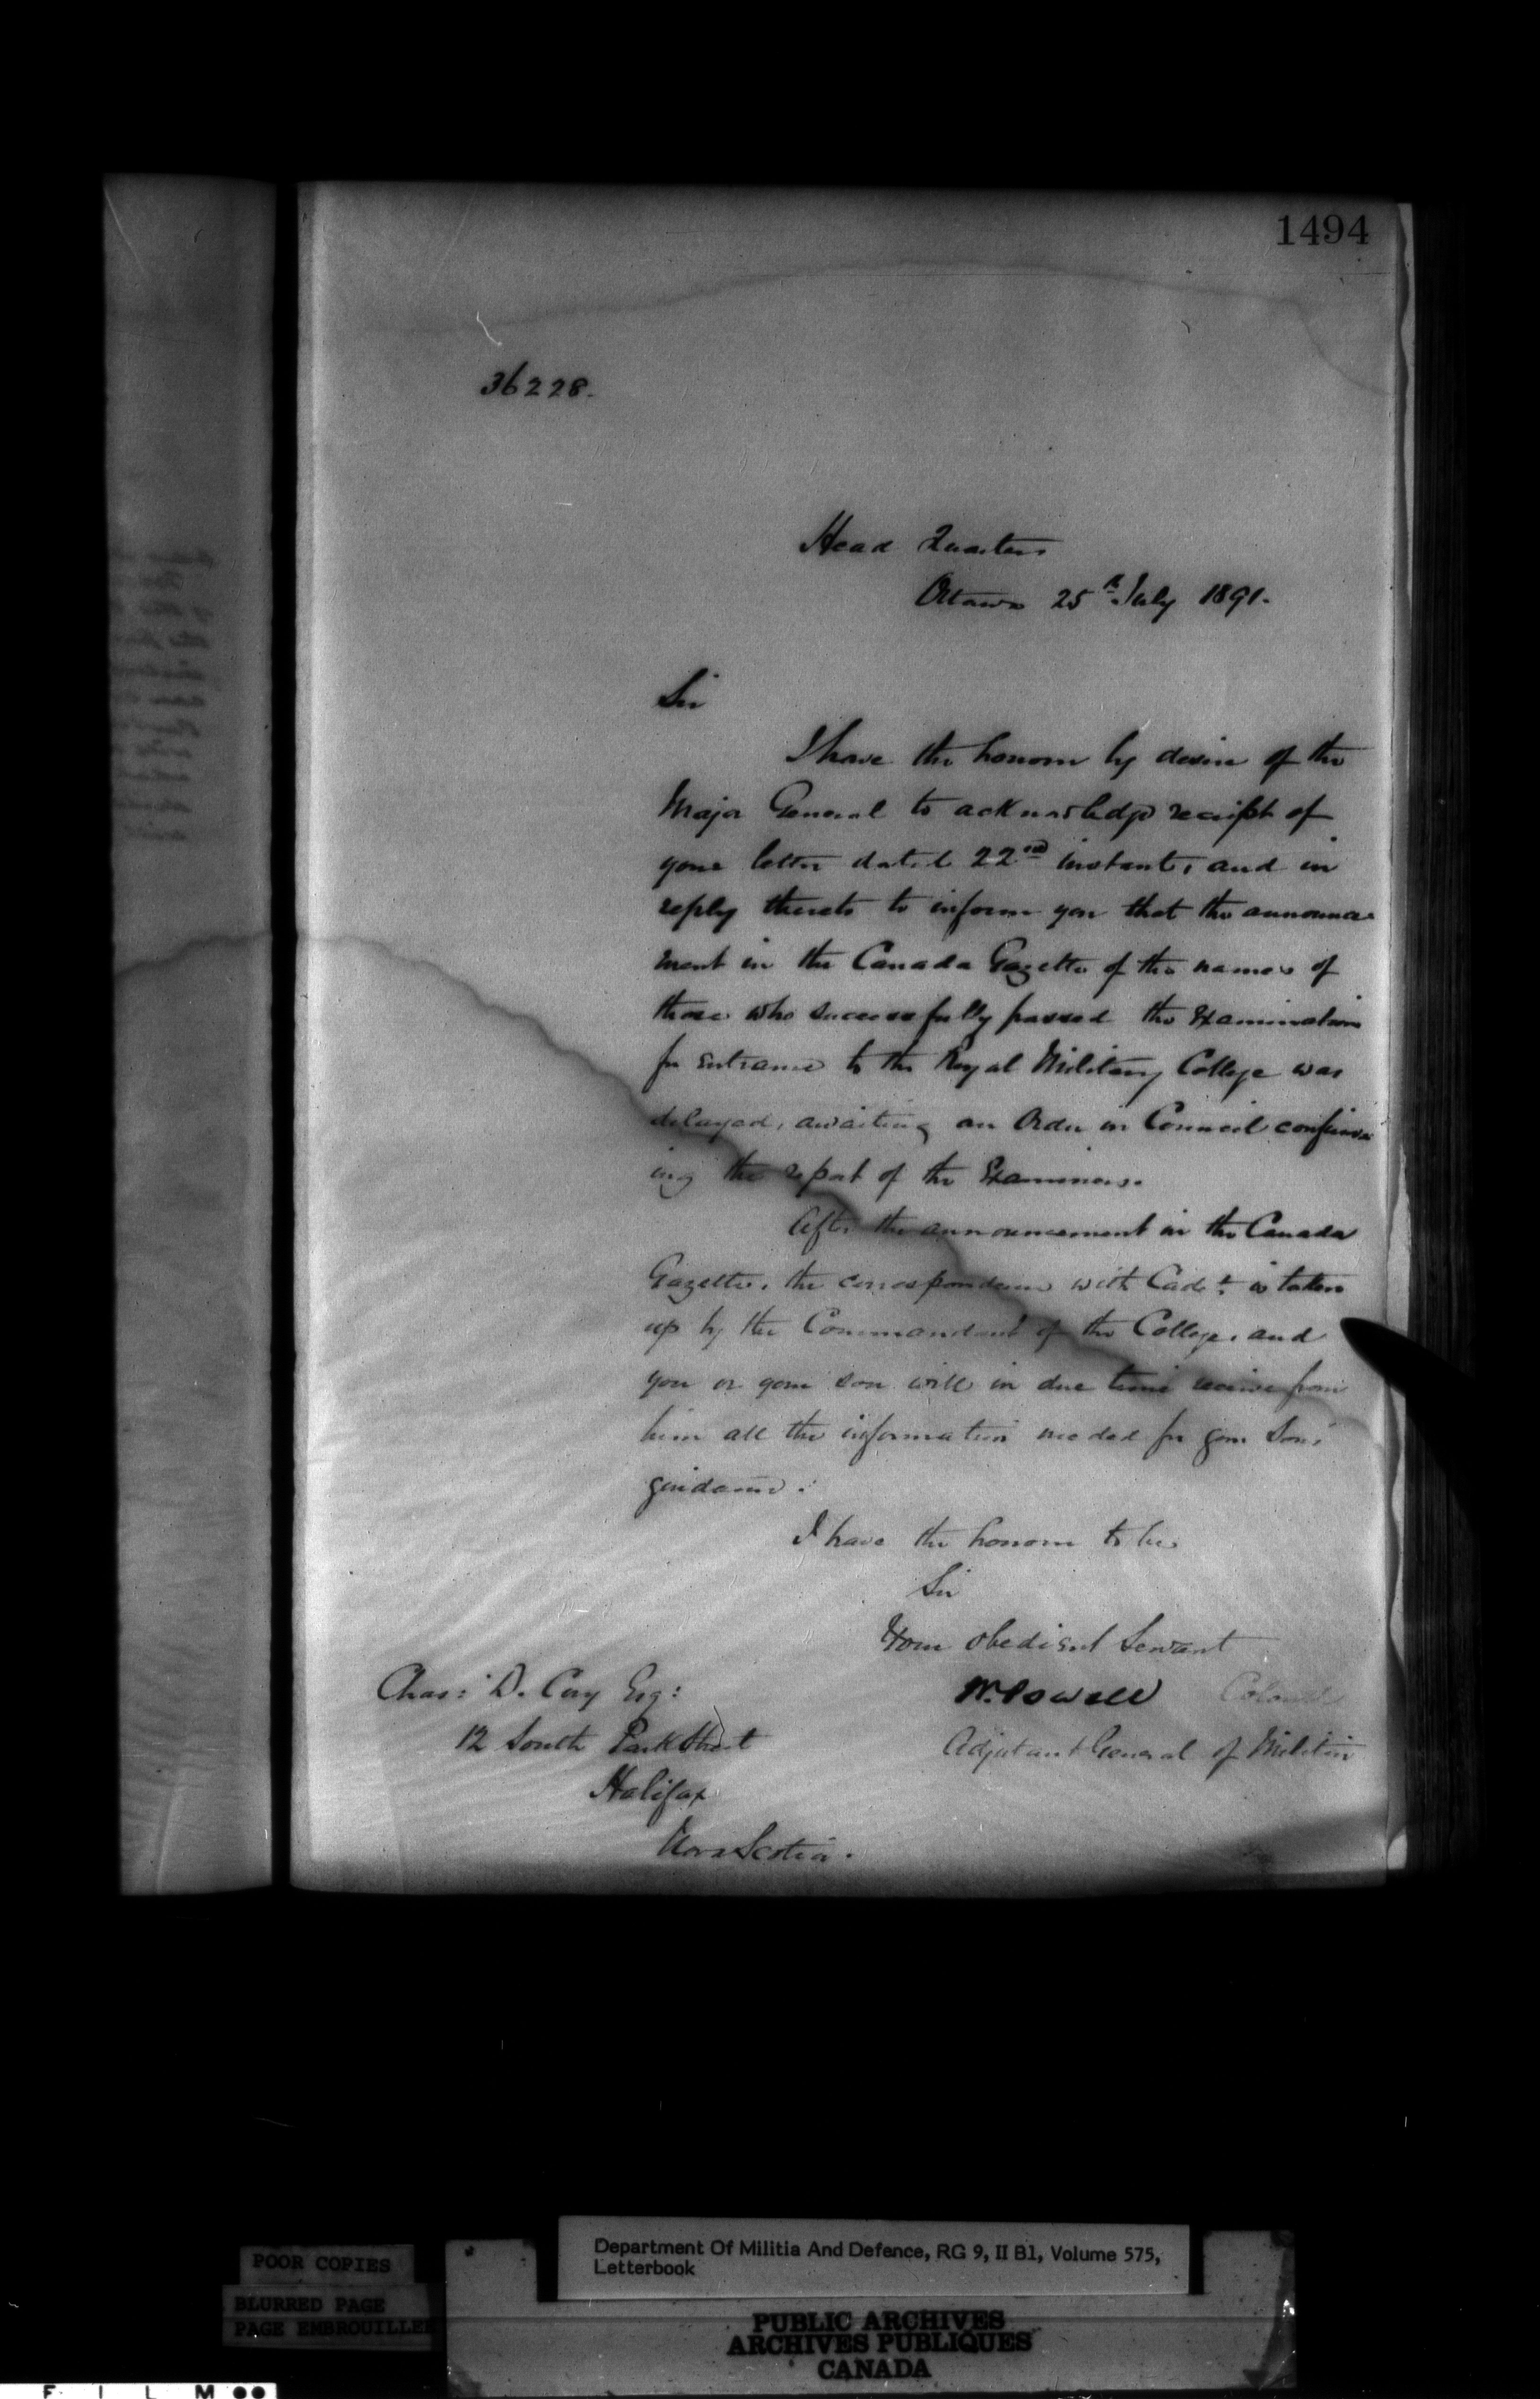 1494
36228.
Head Quarters
Ottawa 25th July 1891.
Sir
I have the honour by desire of the
Major General to acknowledge receipt of
your letter dated 22nd instant, and in
reply thereto to inform you that the announce-
ment in the Canada Gazette of the names of
those who successfully passed the Examination
for entrance to the Royal Military College was
delayed, awaiting an Order in Council confirm-
ing the report of the Examiners.
After the announcement in the Canada
Gazette, the correspondence with Cadets is taken
up by the Commandant of the College, and
you or your son will in due time receive from
him all the information needed for your Son's
guidance.
I have the honour to be
Sir
Your obedient Servant
W. Powell Colonel
Adjutant General of Militia
Chas: D. Cory Esq:
12 South Park Street
Halifax
Nova Scotia.
Department Of Militia And Defence, RG 9, II B1, Volume 575,
Letterbook
POOR COPIES
BLURRED PAGE
PAGE EMBROUILLEE
PUBLIC ARCHIVES
ARCHIVES PUBLIQUES
CANADA
F I L M